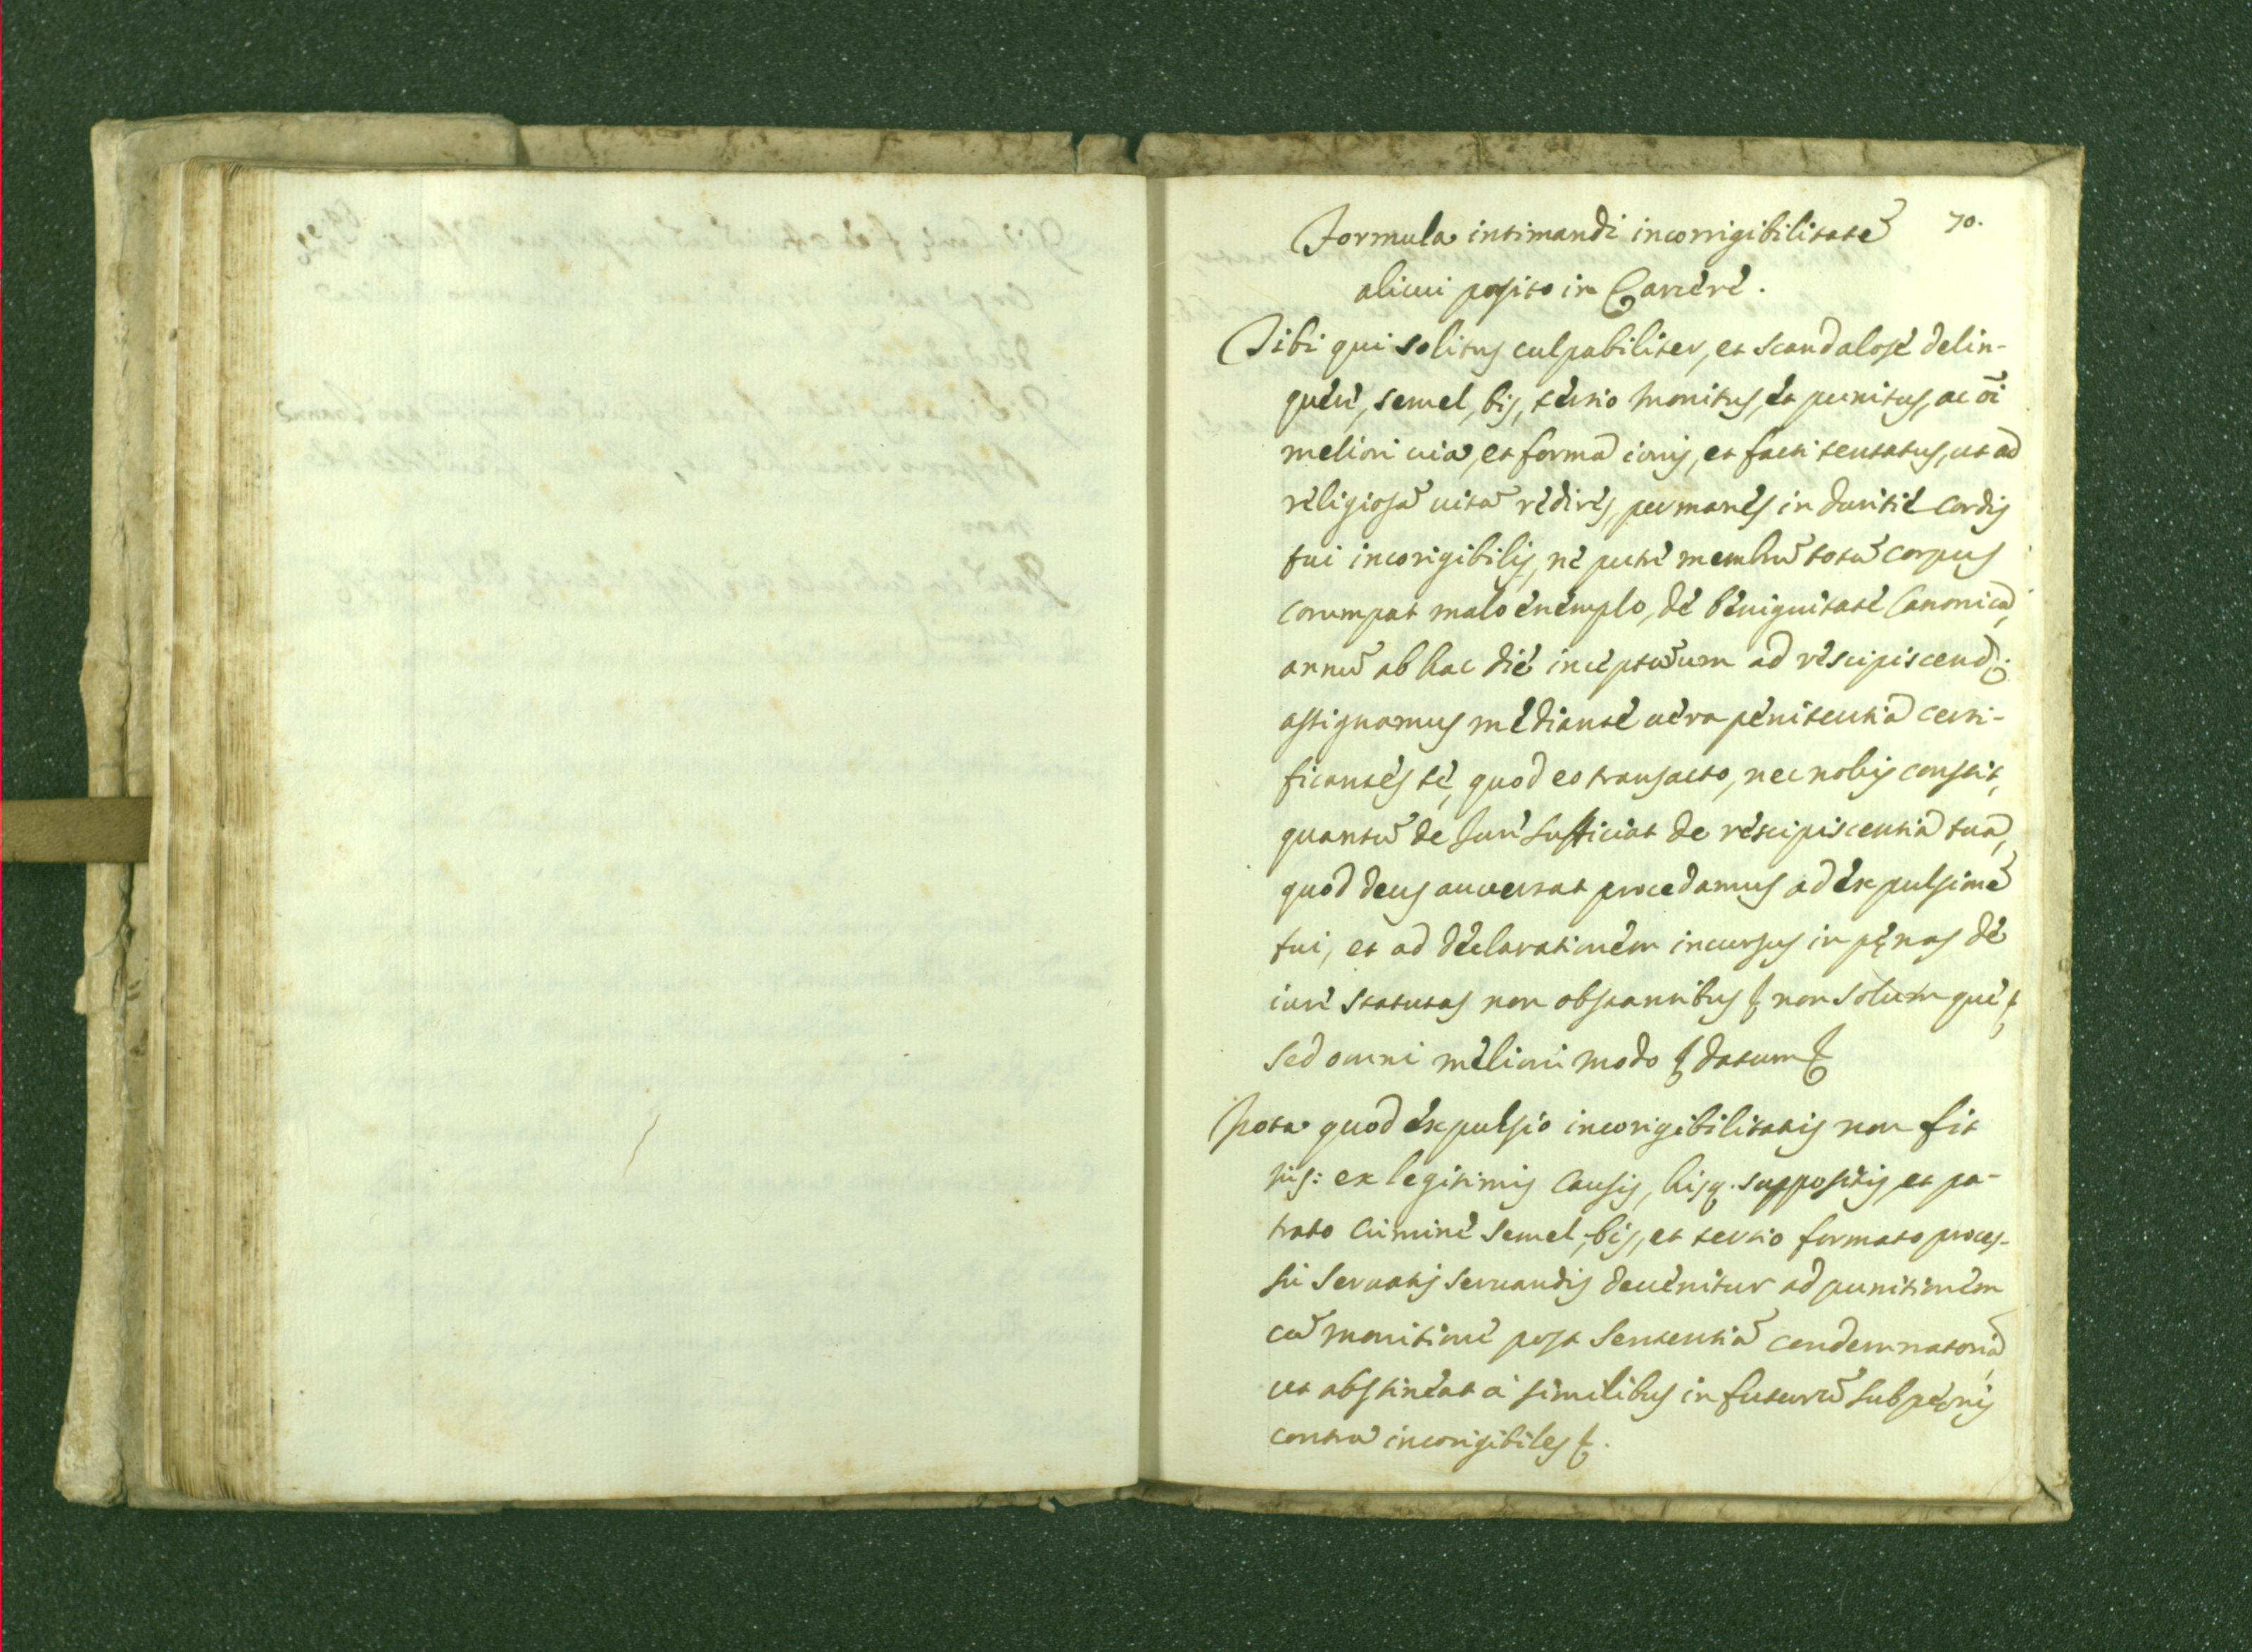 70.
Formula intimandi incorrigibilitatẽ
alicui posito in Carcere.
Tibi qui solitus culpabiliter, et scandalose delin-
quere, semel, bis, tertio monitus, et punitus, ac oĩ
meliori uia, et forma iuris, et facti tentatus, ut ad
religiosã uitã redires, permanes in duritie cordis
tui incorigibilis, ne putre membrũ totũ corpus
corumpat malo exemplo, de benignitate Canonica,
annũ ab hac die incepturum ad rescipiscend.
assignamus mediante uera penitentia certi-
ficantes te, quod eo transacto, nec nobis constit,
quantũ de Iure sufficiat de rescipiscentia tua,
quod deus auuertat procedamus ad expulsionẽ
tui, et ad declarationem incursus in pęnas de
iure statutas non obstantibus &c non solum que &c
sed omni meliori modo &c datum &c
Nota quod expulsio incorigibilitatis non fit
nis: ex legitimis causis, hisq. suppositis, et pa-
trato crimine semel, bis, et tertio formato proces-
su seruatis seruandis deuenitur ad punitionem
cũ monitione post sententiã condemnatoriã,
ut abstineat à similibus in futurũ sub pęnis
contra incorigibiles &c.